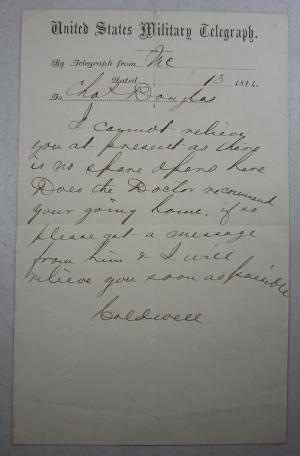 United States Military Telegraph.
By Telegraph from Mc
Dated 13 1864.
To Chas Douglas
I cannot relieve
you at present as there
is no spare opers here
Does the Doctor recommend
your going home, if so
please get a message
from him & I will
relieve you soon as possible
Caldwell